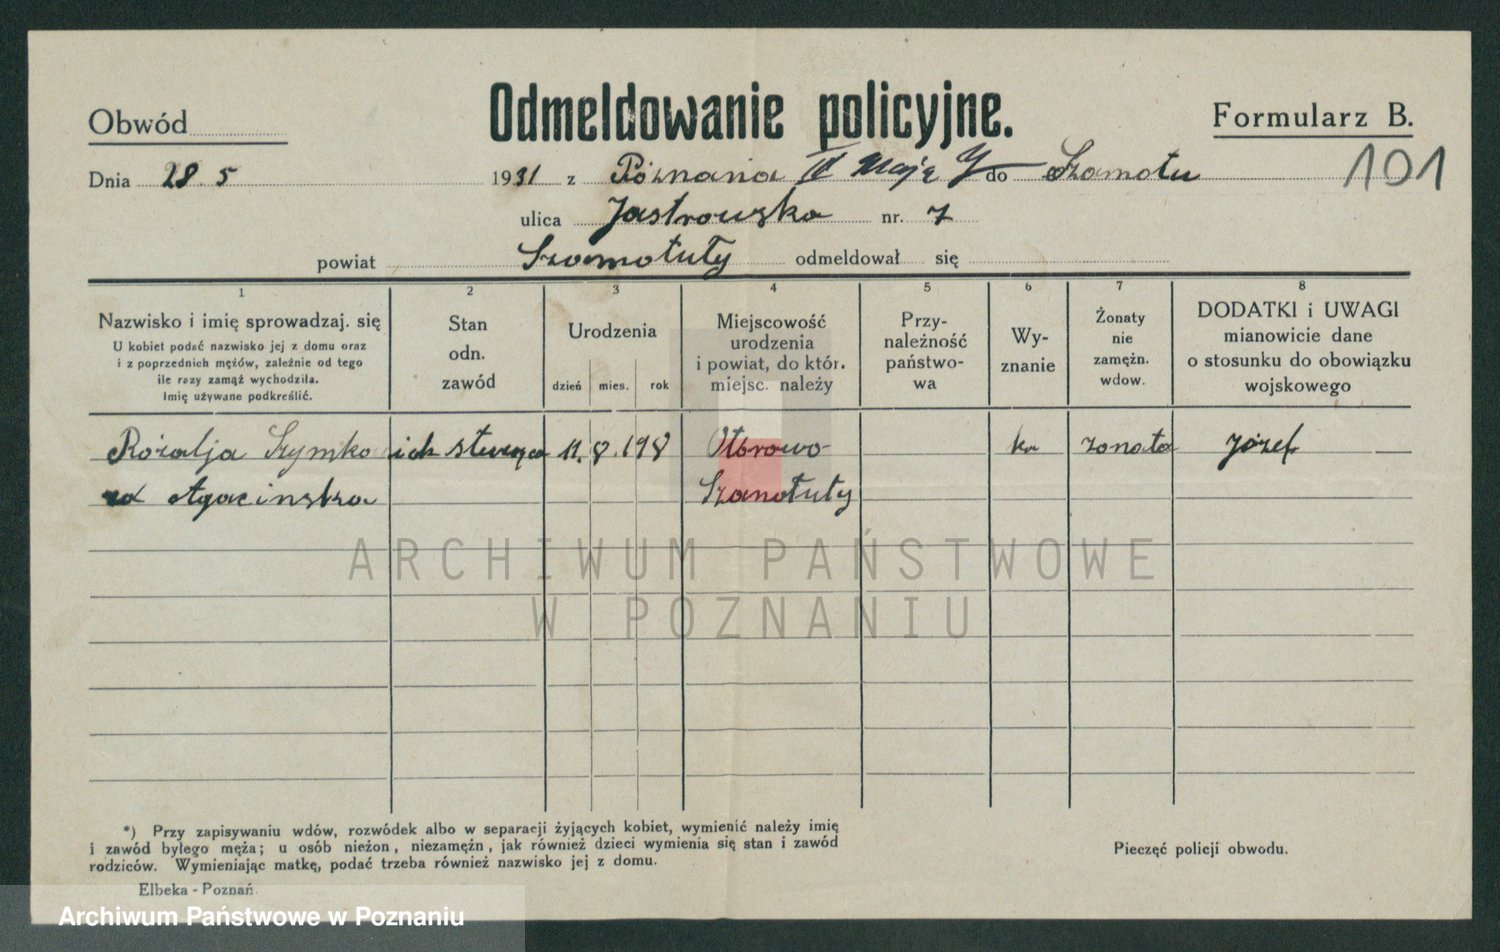 Obwód
Odmeldowanie policyjne.
Formularz B.
101
Dnia 28. 5 1931 z Poznania do Szamotu
ulica Jastrowska nr. 7
powiat Szamotuły odmeldował się
1 2 3 4 5 6 7 8
Nazwisko i imię sprowadzaj. się
U kobiet podać nazwisko jej z domu oraz
i z poprzednich mężów, zależnie od tego
ile razy zamąż wychodziła.
Imię używane podkreślić.
Stan
odn.
zawód
Urodzenia
dzień mies. rok
Miejscowość
urodzenia
i powiat, do któr.
miejsc. należy
Przy-
należność
państwo-
wa
Wy-
znanie
Żonaty
nie
zamężn.
wdow.
DODATKI i UWAGI
mianowicie dane
o stosunku do obowiązku
wojskowego
Rozalja Szymko 11. 8. 198 Otorowo ka zonata Józef
Agacinska Szamotuły
ARCHIWUM PAŃSTWOWE
W POZNANIU
*) Przy zapisywaniu wdów, rozwódek albo w separacji żyjących kobiet, wymienić należy imię
i zawód bylego męża; u osób nieżon, niezamężn, jak również dzieci wymienia się stan i zawód
rodziców. Wymieniając matkę, podać trzeba również nazwisko jej z domu.
Pieczęć policji obwodu.
Elbeka - Poznań
Archiwum Państwowe w Poznaniu